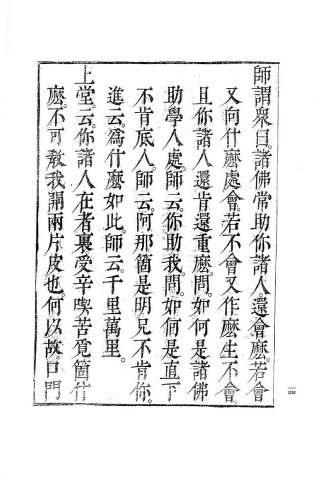 師謂衆曰。諸佛常助你諸人還會麽。若會
又向什麽處會若不會又作麽生不會。
且你諸人還肯還重麽。問。如何是諸佛
助學人處。師云。你助我。問。如何是直下
不肯底人師云。阿那箇是明兄不肯你。
進云。爲什麽如此。師云。千里萬里。
上堂。云。你諸人在者裏受辛喫苦覓箇什
麽。不可教我開兩片皮也。何以故。口門